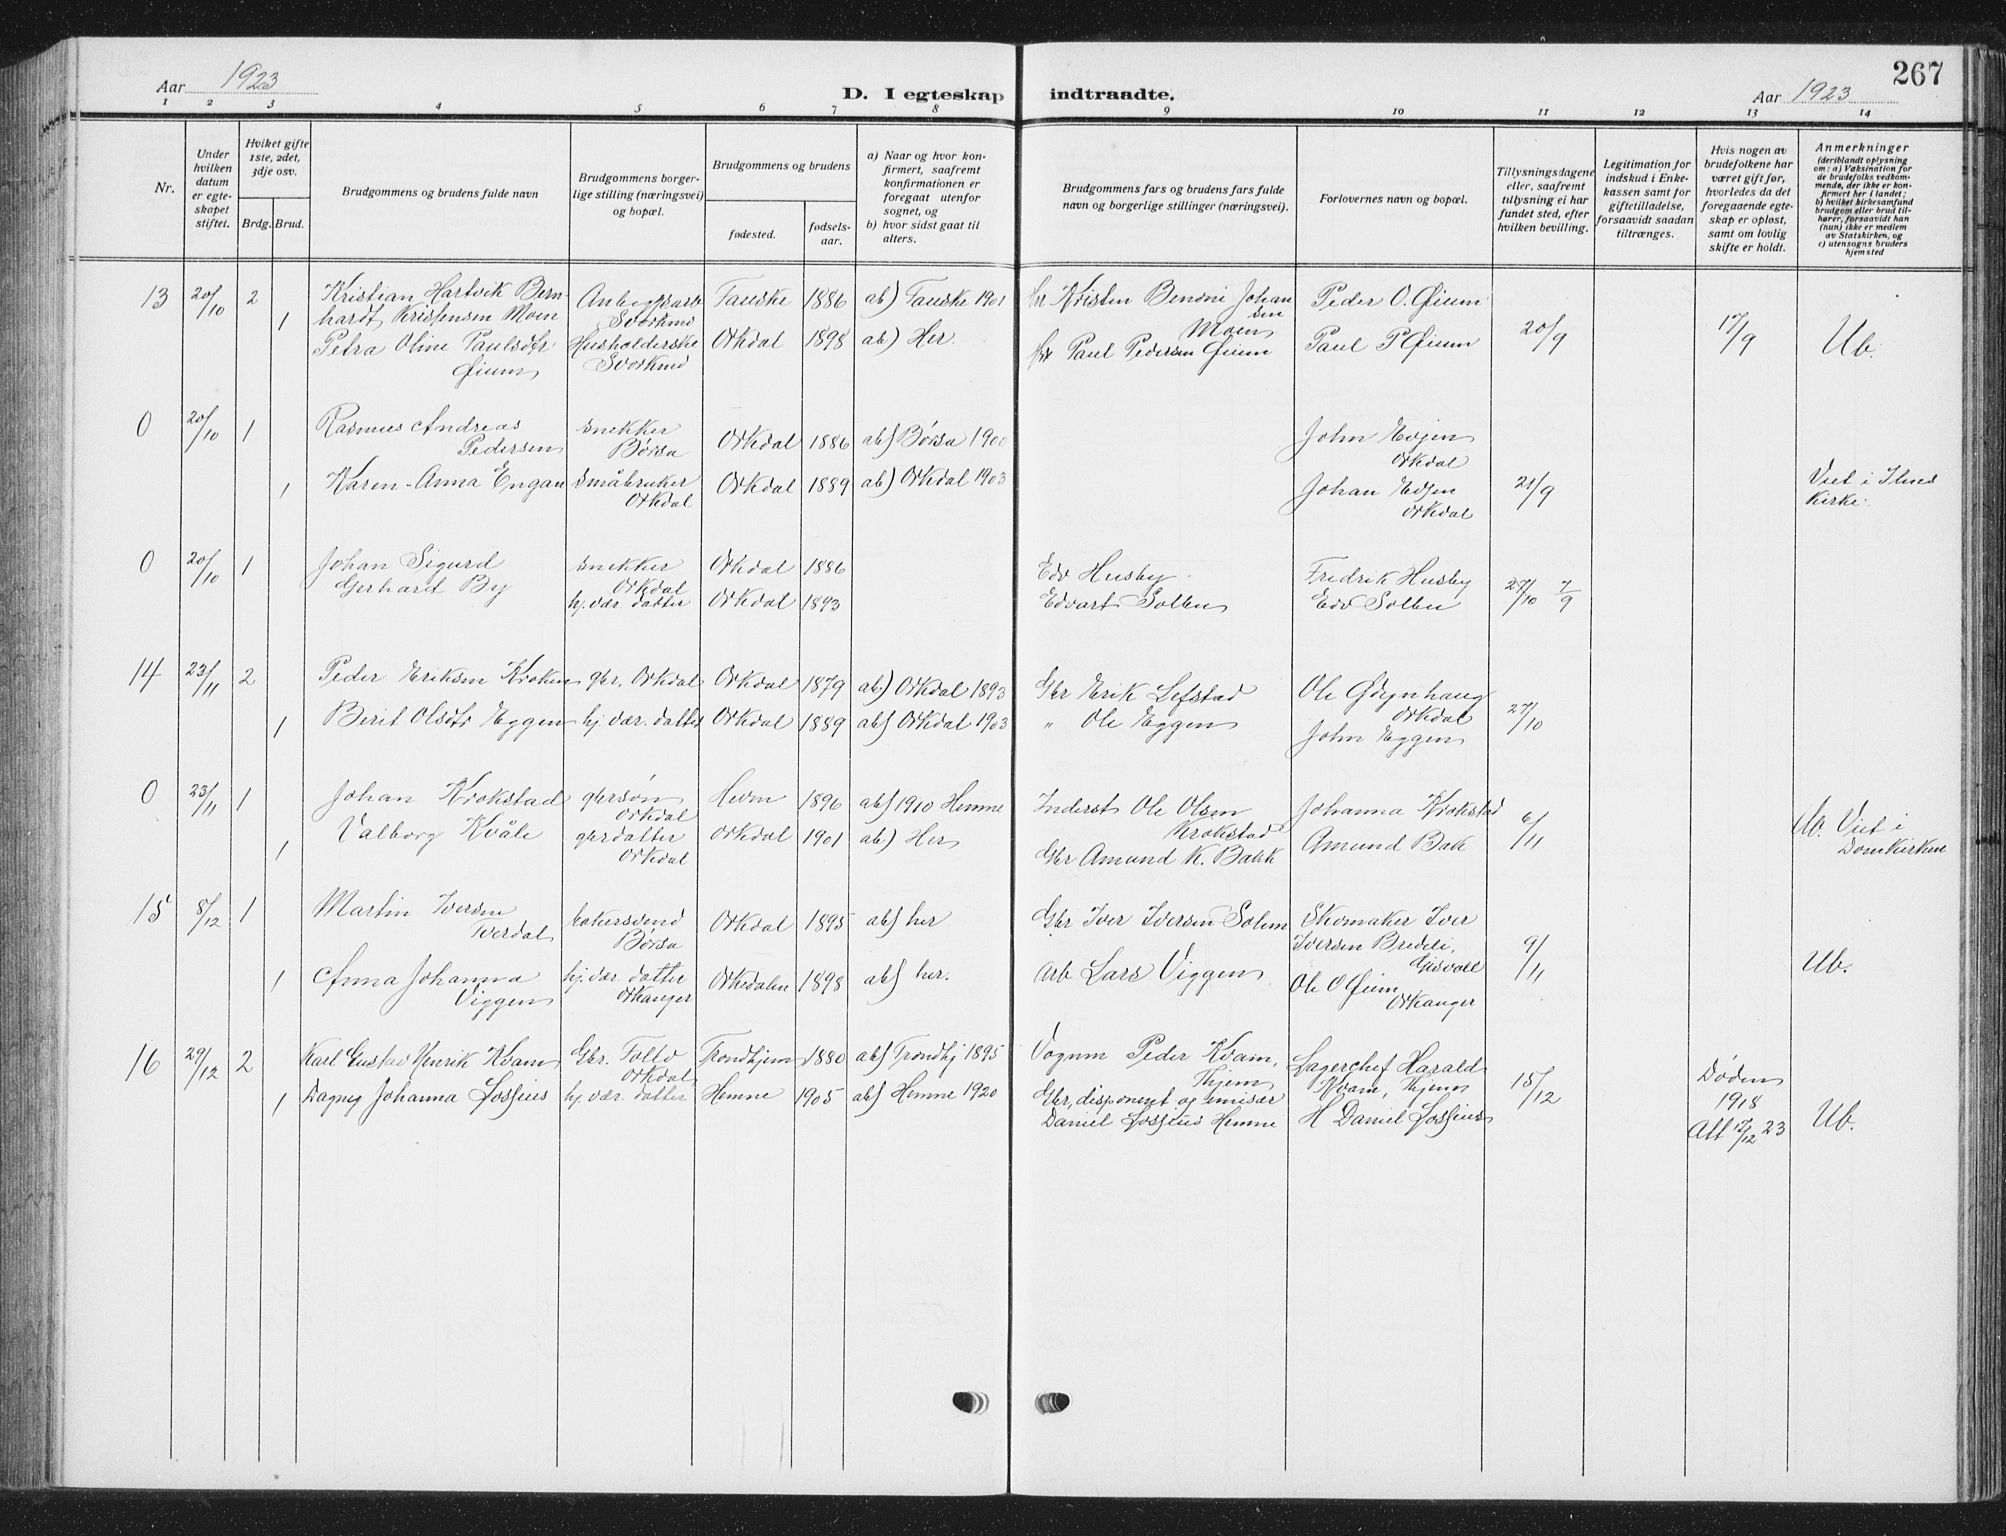 267
Aar 1923
D. I egteskap indtraadte.
Aar 1923
1 2 3 4 5 6 7 8 9 10 11 12 13 14
Nr.
Under hvilken datum er egteskapet stiftet.
Hviket gifte 1ste, 2det, 3dje osv.
Brdg. Brud.
Brudgommens og brudens fulde navn
Brudgommens borgerlige stilling (næringsvei) og bopæl.
Brudgommens og brudens
fødested.
fødselsaar.
a) Naar og hvor konfirmert, saafremt konfirmationen er foregaat utenfor sognet, og
b) hvor sidst gaat til alters.
Brudgommens fars og brudens fars fulde navn og borgerlige stillinger (næringsvei).
Forlovernes navn og bopæl.
Tillysningsdagene eller, saafremt tillysning ei har fundet sted, efter hvilken bevilling.
Legitimation for indskud i Enkekassen samt for giftetilladelse, forsaavidt saadan tiltrænges.
Hvis nogen av brudefolkene har været gift før, hvorledes da det foregaaende egteskap er opløst, samt om lovlig skifte er holdt.
Anmerkninger
(deriblandt oplysning om: a) Vaksination for de brudefolks vedkommende, der ikke er konfirmert her i landet; b) hvilket kirkesamfund brudgom eller brud tilhører, forsaavidt han (hun) ikke er medlem av Statskirken, og c) utensogns bruders hjemsted
13 20/10 2 Kristian Hartvik Bern- Fauske 1886 ab) Fauske 1901 Kristen Benoni Johan Peder O. Øium
1 hardt Kristensen Moen Svorkmo sen Moen
Petra Oline Paulsdtr Husholderske Orkdal 1898 ab) Her. Paul Pedersen Øium Paul P Øium 20/9 17/9 Ub.
Øium Svorkmo
0 20/10 1 Rasmus Andreas snekker Orkdal 1886 ab) Børsa 1900 John Evjen
Pedersen Børsa Orkdal
1 Karen-Anna Engan småbruker Orkdal 1889 ab) Orkdal 1903 Johan Evjen 21/9 Viet i Ilens
Orkdal Orkdal Kirke.
0 20/10 1 Johan Sigurd snekker Orkdal 1886 Edv Husby Fredrik Husby 27/10 7/9
Gerhard By Orkdal
hj. vær. datter Orkdal 1893 Edvart Solbu Edv Solbu
14 23/11 2 Peder Eriksen Kroken gbr. Orkdal Orkdal 1879 ab) Orkdal 1893 Gbr Erik Lefstad Ole
Orkdal
1 Berit Olsdtr Eggen hj. vær. datter Orkdal 1889 ab) Orkdal 1903 " Ole Eggen John Eggen 27/10
0 23/11 1 Johan Krokstad gbrsøn Hevn 1896 ab) 1910 Hemne Inderst Ole Olsen Johanna Krokstad
Orkdal Krokstad
1 Valborg Kvåle gbrdatter Orkdal 1901 ab) Her Gbr Amund K. Bakk Amund Bak 6/11 Ub. Viet i
Orkdal Domkirken
15 8/12 1 Martin Iversen bakersvend Orkdal 1895 ab) her Gbr Iver Iversen Solem Skomaker Iver
Børsa Iversen Bredeli,
1 Anna Johanna hj. vær. datter Orkedalen 1898 ab) her. Arb Lars Viggen Ole O Øium 9/11 Ub.
Viggen Orkanger Orkanger
16 29/12 2 Karl Gustav Henrik Kvam Gbr. Trondhjem 1880 ab) Trondhj 1895 Vognm Peder Kvam, Lagerchef Harald
Orkdal Thjem Kvam, Thjem
1 Dagny Johanna Lossius hj. vær. datter Hemne 1905 ab) Hemne 1920 Gbr, disponent og emisær 15/12 Døden
Daniel Lossius Hemne H Daniel Lossius 1918
Att 17/12 23 Ub.